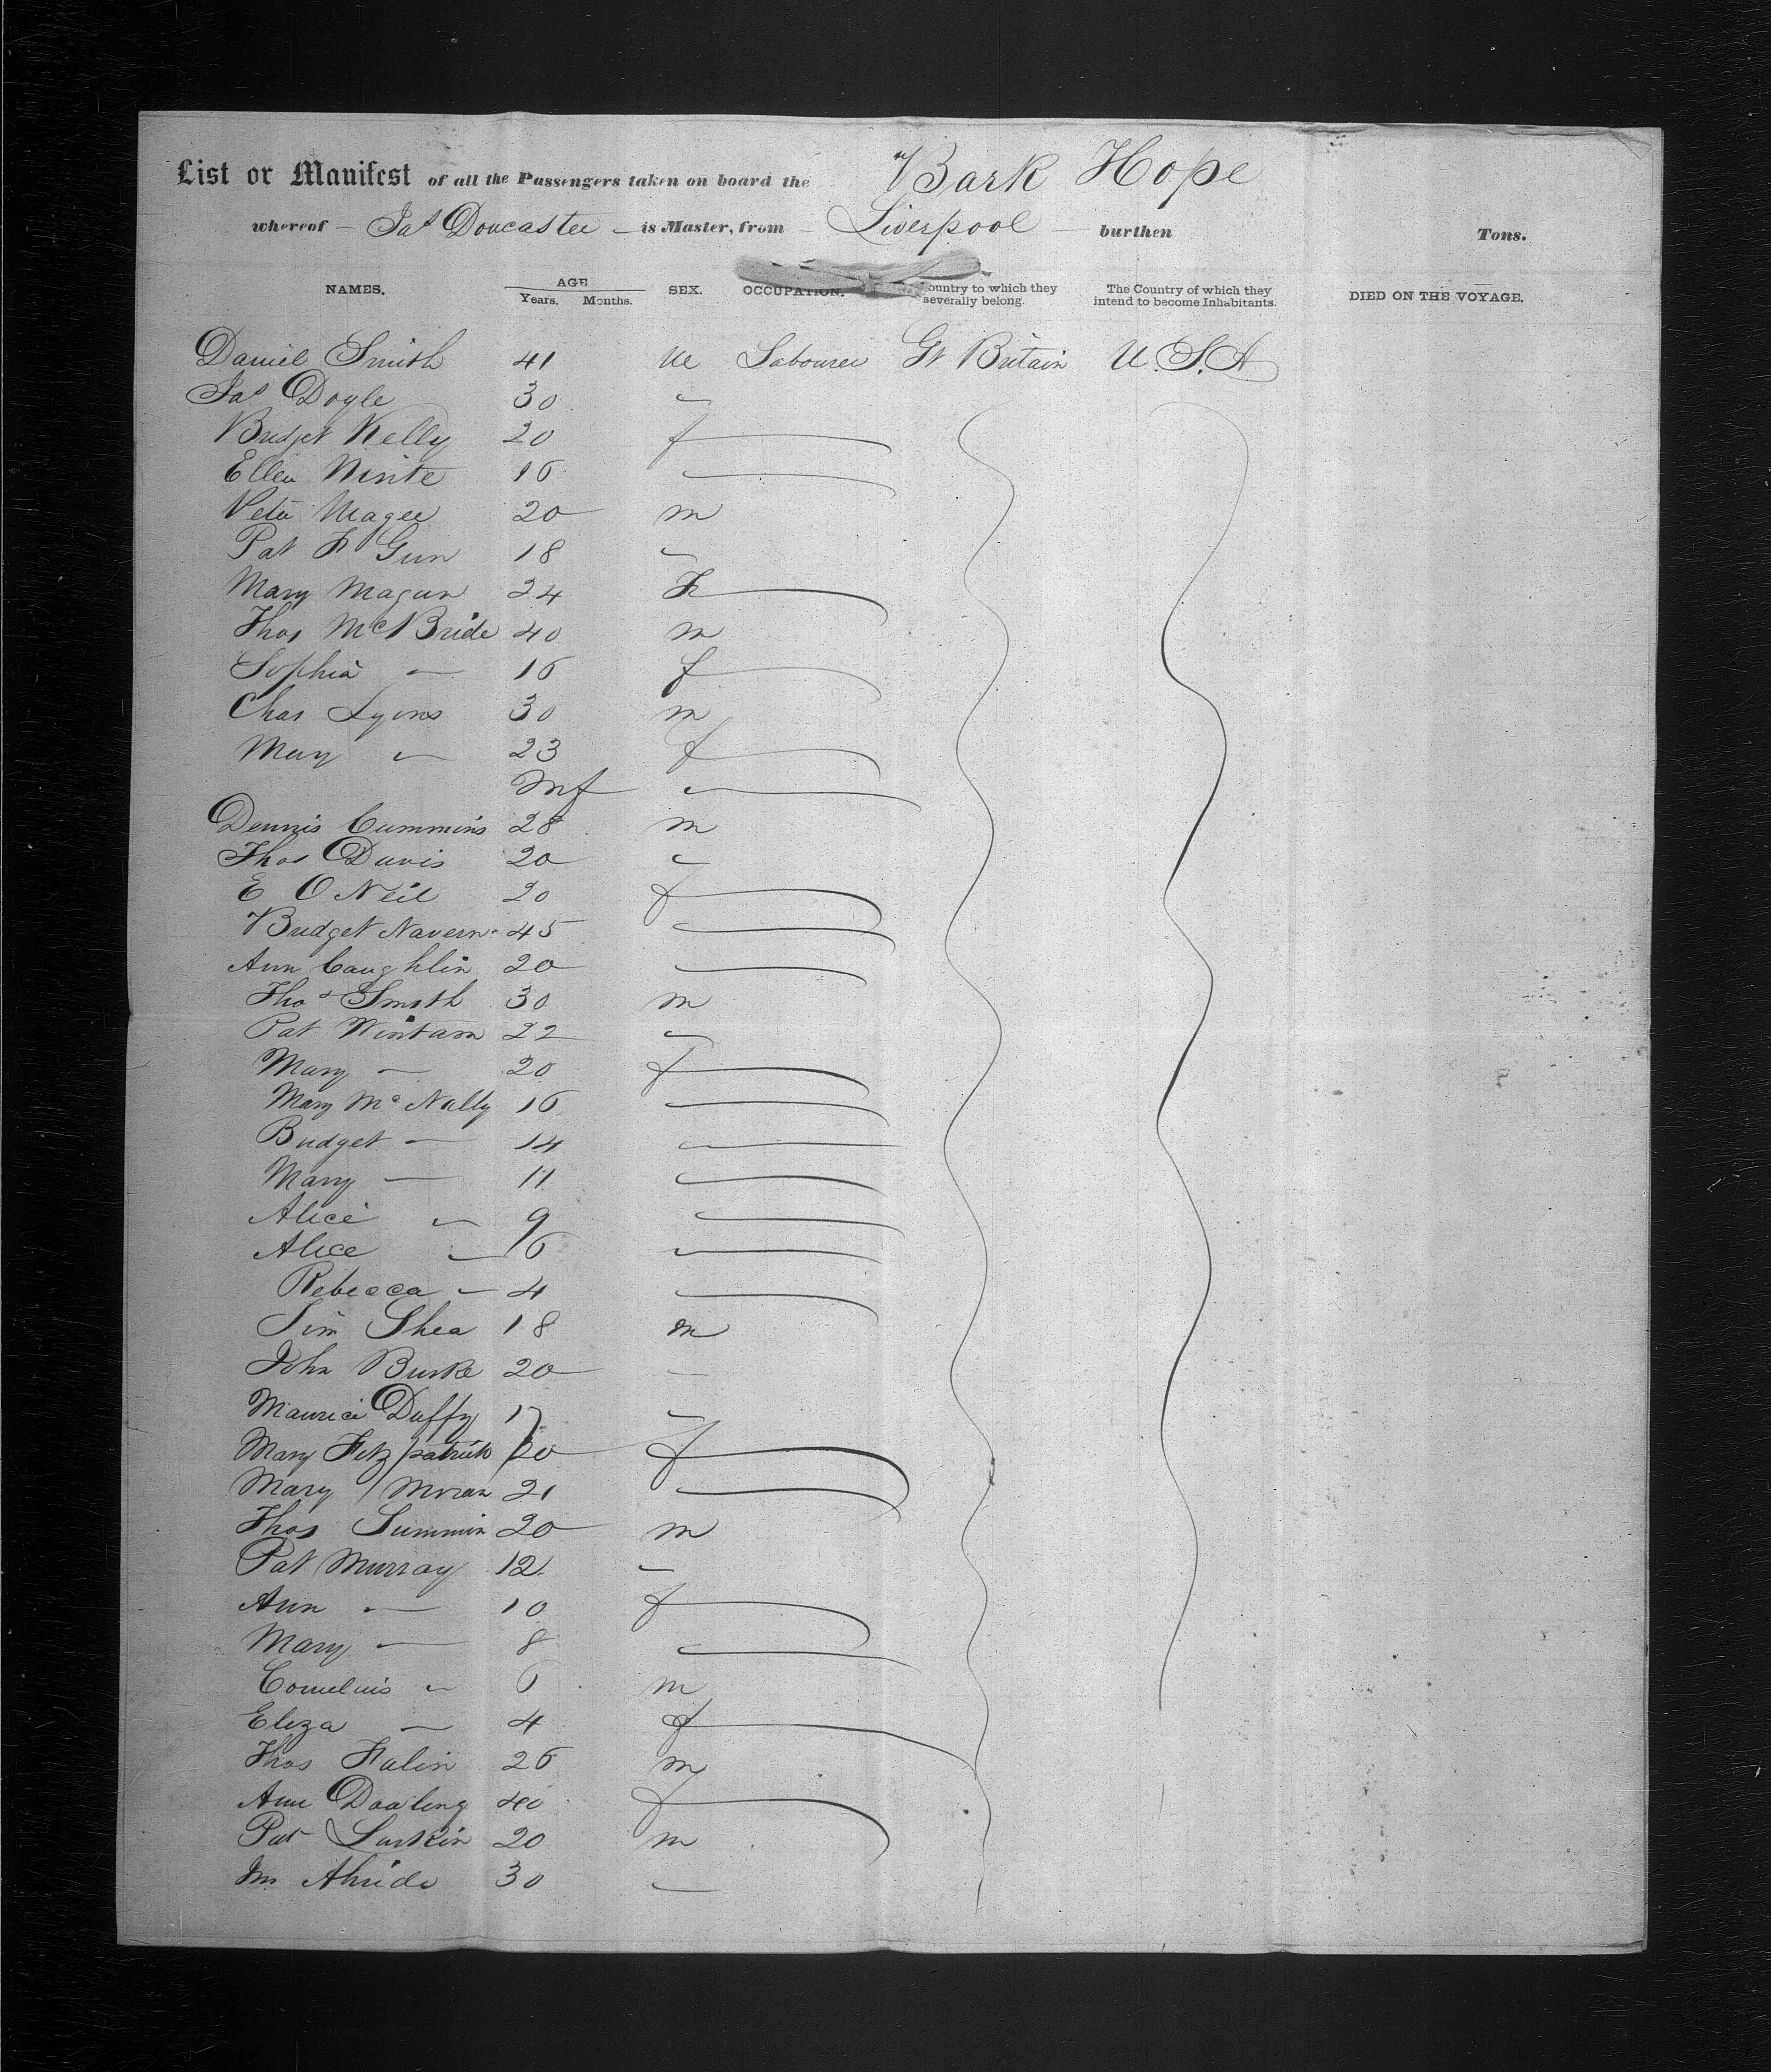 List or Manifest of all the Passengers taken on board the Bark Hope
whereof Jas Doncaster is Master, from Liverpool burthen Tons.
NAMES. AGE Years. Months. SEX. OCCUPATION. ountry to which they severally belong. The Country of which they intend to become Inhabitants. DIED ON THE VOYAGE.
Daniel Smith 41 M Labourer Gt Britain U.S.A
Jas Doyle 30
Bridget Kelly 20 f
Ellen 16
Peter Magee 20 m
Pat 18
Mary Magun 24 F
Thos McBride 40 m
Sophia — 16 f
Chas Lyons 30 m
Mary — 23 f
Inf
Dennis Cummins 28 m
Thos Davis 20
E O Neil 20 f
Bridget Navern 45
Ann Caughlin 20
Thos Smith 30 m
Pat Wintam 22
Mary — 20 f
Mary McNally 16
Bridget — 14
Mary — 11
Alice — 9
Alice — 6
Rebecca — 4
Tim Shea 18 m
John Burke 20 —
Maurice Duffy 17
Mary Fitzpatrick 20 f
Mary Moran 21
Thos Summin 20 m
Pat Murray 12 —
Ann — 10 f
Mary — 8
Cornelius — 6 m
Eliza — 4 f
Thos Falin 26 m
Ann Dooling 40 f
Pat Larkin 20 m
30 —